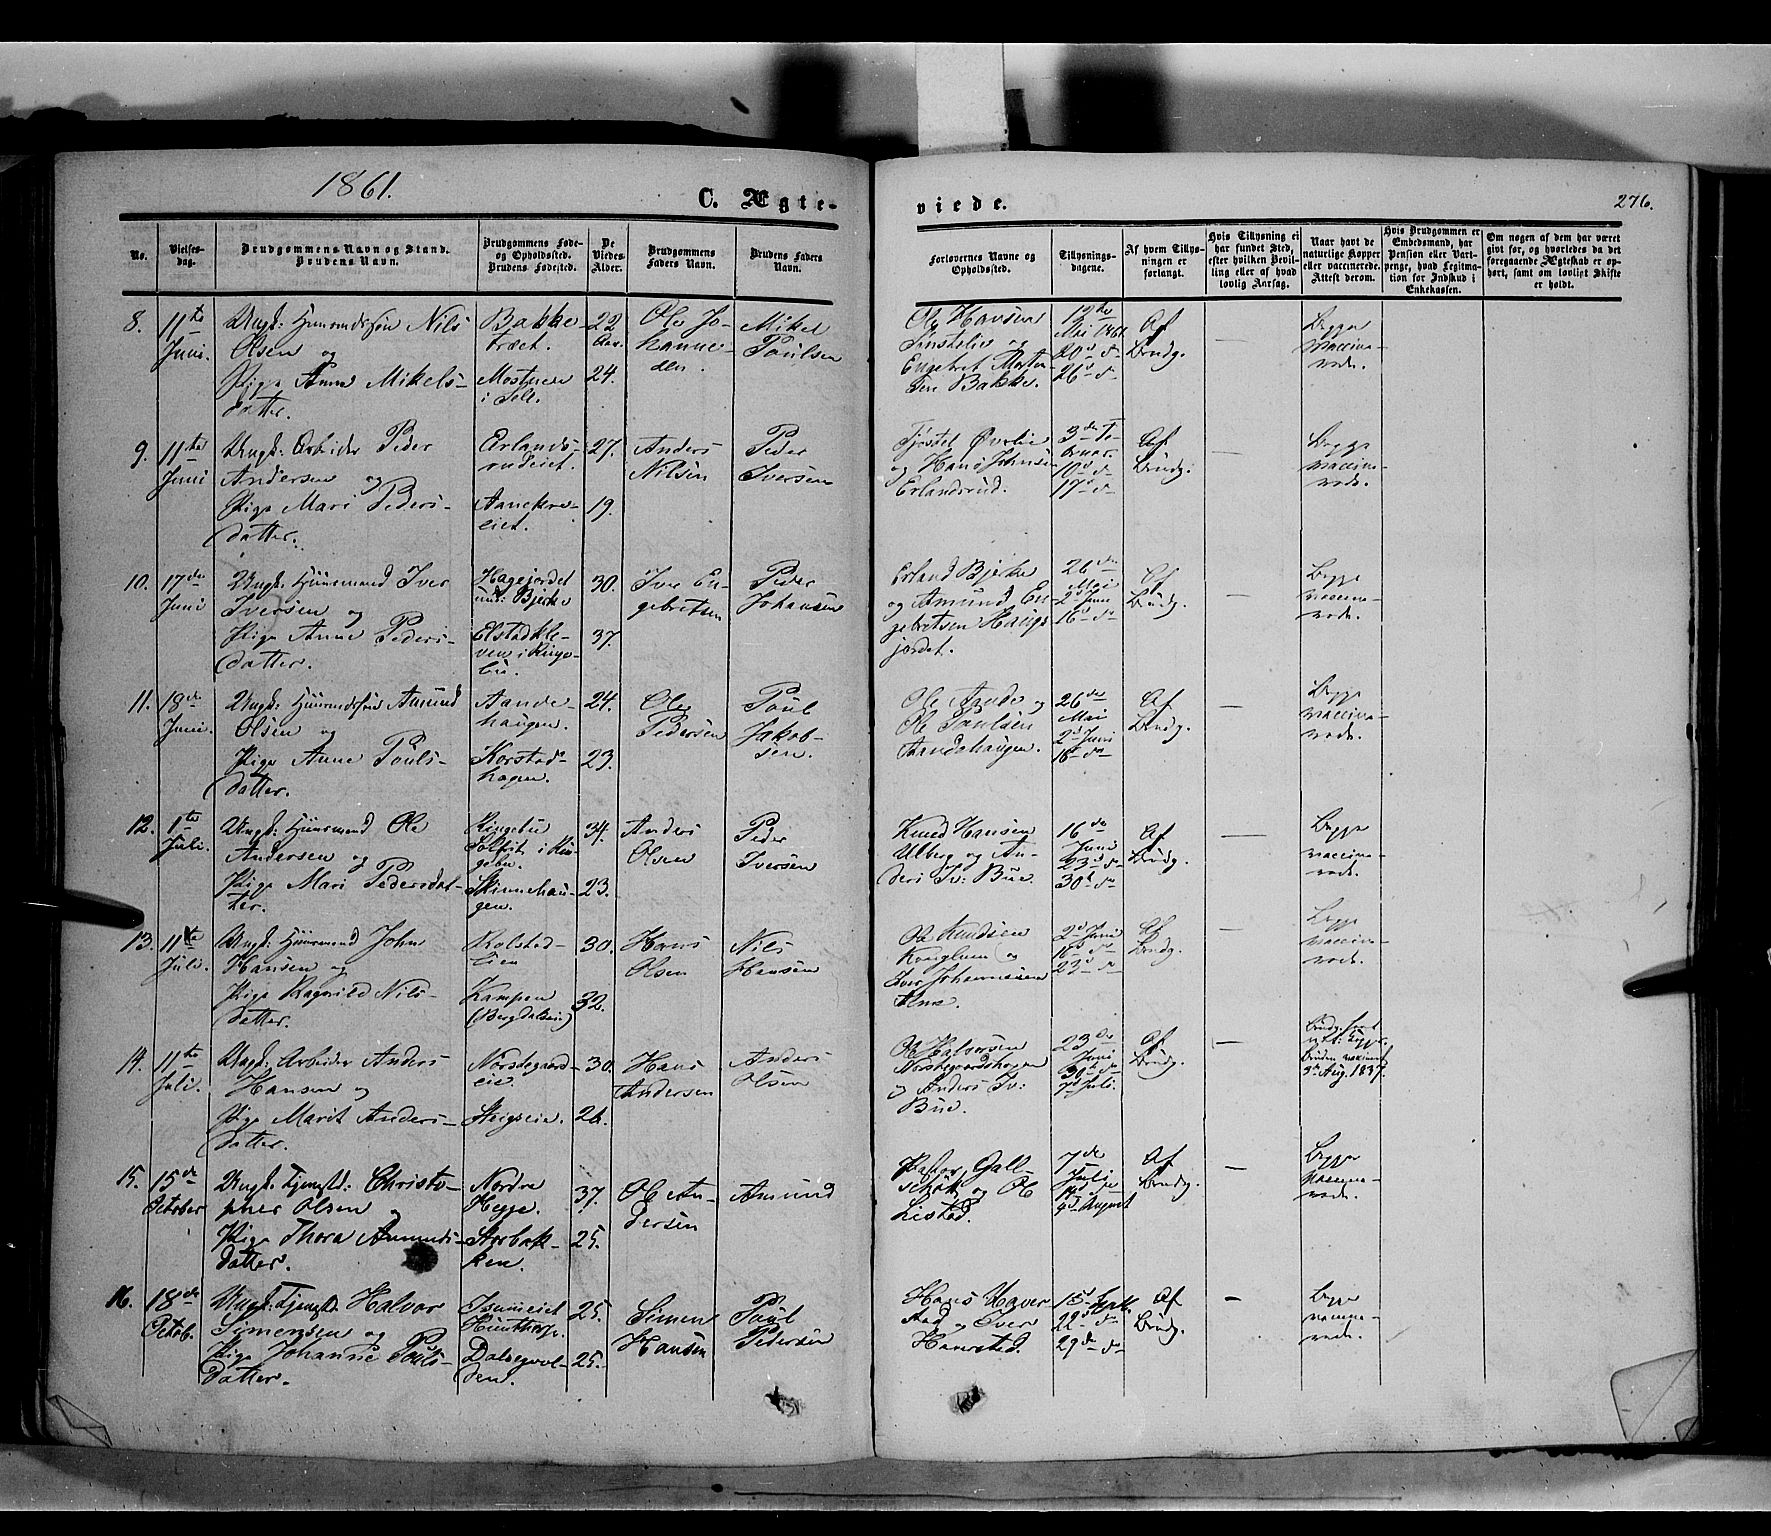 1861.
C. Ægte-
viede.
276.
No.
Vielses-
dag.
Brudgommens Navn og Stand.
Brudens Navn.
Brudgommens Føde-
og Opholdssted.
Brudens Fødested.
De
Viedes
Alder.
Brudgommens
Faders Navn.
Brudens Faders
Navn.
Forlovernes Navne og
Opholdssted.
Tillysnings-
dagene.
Af hvem Tillys-
ningen er
forlangt.
Hvis Tillysning ei
har fundet Sted,
efter hvilken Bevil-
ling eller af hvad
lovlig Aarsag.
Naar havt de
naturlige Kopper
eller vaccinerede.
Attest derom.
Hvis Brudgommen er
Embedsmand, har
Pension eller Vart-
penge, hvad Legitima-
tion for Indskud i
Enkekassen.
Om nogen af dem har været
givt før, og hvorledes da det
foregaaende Ægteskab er op-
hørt, samt om lovligt Skifte
er holdt.
8. 11te Juni. Ungk: Huusmandssøn Nils
Olsen og
Pige Anne Mikels-
datter.
Bakke-
træet.
i Sell.
22
24.
Ole Jo-
hanne-
sen.
Mikel
Poulsen
Ole Hansen
og
Engebret Morten-
sen Bakke.
12te
Mai 1861
20d d
26d d
Af
Brudg.
Begge
vaccine-
rede.
9. 11te Juni Ungk: Arbeider Peder
Andersen og
Pige Mari Peders-
datter.
Erlands-
rudeiet.
27.
19.
Anders
Nilsen
Peder
Iversen
Øverlie
og Hans Johnsen
Erlandsrud.
10d d
17d d
Af
Brudg:
Begge
vaccine-
rede.
10. 17de Juni Ungk: Huusmand Iver
Iversen og
Pige Anne Peders-
datter.
Hagejordet
und: Bjerke
Elstadkle-
ven i Ringe-
bu.
30.
37.
Iver En-
gebretsen
Peder
Johansen
Erland Bjerke
og Amund En-
gebretsen Hauge-
jordet.
26de
Mai
2d Juni
16d d
Af
Brudg.
Begge
vaccine-
rede.
11. 18de Juni Ungk: Huusmandssøn Amund
Olsen og
Pige Anne Pouls-
datter.
Aande-
haugen.
Korstad-
hagen.
24.
23.
Ole
Pedersen
Poul
Jakob-
sen.
Ole Ande og
Ole Paulsen
Aandehaugen.
26de
Mai
2d Juni
16d d
Af
Brudg.
Begge
vaccine-
rede.
12. 1te Juli. Ungk: Huusmand Ole
Andersen og
Pige Mari Pedersdat-
ter.
Ringebu
i Rin-
gebu.
Skinnehau-
gen.
34.
23.
Anders
Olsen
Peder
Iversen
Knud Hansen
Ulberg og An-
ders Iv: Bue.
16de
Juni
23d d
30d d
Af
Brudg.
Begge
vaccine-
rede.
13. 11te Juli. Ungk: Huusmand John
Hansen og
Pige Ragnild Nils-
datter.
Rolstad-
lien
Kampen
(Bergdalseie)
30.
32.
Hans
Olsen
Nils
Hansen
Ole Knudsen
Konglum og
Iver Johannesen
2d Juni
16d d
23d d
Af
Brudg.
Begge
vaccine-
rede.
14. 11te Juli. Ungk: Arbeider Anders
Hansen og
Pige Marit Anders-
datter.
Norstegaards-
eie.
Steigseie.
30.
26.
Hans
Andersen
Anders
Olsen
Ole Halvorsen
Norstegaardshagen
og Anders Iv:
Bue.
23de
Juni
30d d
7d Juli
Af
Brudg.
Brudg. havt
nat: Kopp:
Bruden vaccineret
Aug. 1837.
15. 15de October Ungk: Tjenestd: Christo-
pher Olsen og
Pige Thora Amunds-
datter.
Nordre
Hegge.
Storbak-
ken.
37.
25.
Ole An-
dersen
Amund
Pastor Gall-
schøt og Ole
Listad.
7de
Julije
14d d
4d August
Af
Brudg.
Begge
vaccine-
rede.
16. 18de Octob. Ungk: Tjenestd: Halvor
Simensen og
Pige Johanne Pouls-
datter.
Hunthorp.
Dalsegvol-
den.
25.
25.
Simen
Hansen
Poul
Pedersen
Hans Haver-
stad og Iver
Haverstad.
15d Sept.
22d d
29de d
Af
Brudg.
Begge
vaccine-
rede.